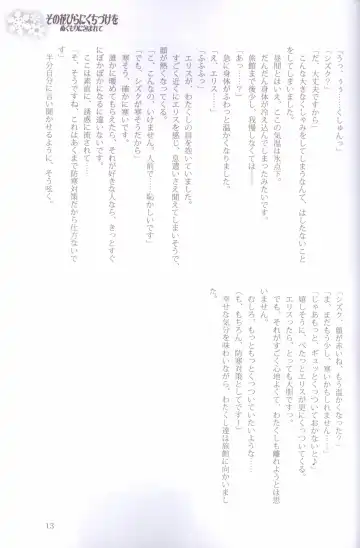 その花びらにくちづけを
ぬくもりに包まれて
「うっ、うぅ……くしゅんっ」
「シズク？」
「だ、大丈夫ですから」
こんな大きなくしゃみをしてしまうなんて、はしたないこと
をしてしまいました。
昼間とはいえ、ここの気温は氷点下。
だんだん身体が冷え込んでしまったみたいです。
旅館まで後少し、我慢しなくては――
「あっ……？」
急に身体がふわっと温かくなりました。
「え、エリス……」
「ふふふっ」
エリスが、わたくしの肩を抱いていました。
すぐ近くにエリスを感じ、息遣いさえ聞こえてしまいそうで、
顔が熱くなってくる。
「こ、こんなの、いけません。人前で……恥ずかしいです」
「でも、シズクが寒そうだから」
寒そう、確かに寒いです。
誰かに暖めてもらえたら、それが好きな人なら、きっとすぐ
にぽかぽかになるに違いないです。
ここは素直に、誘惑に流されて……
「そ、そうですね、これはあくまで防寒対策だから仕方ないで
す」
半分自分に言い聞かせるように、そう呟く。
「シズク、顔が赤いよ、もう温かくなった？」
「ま、まだもう少し、寒いかもしれません……」
「じゃあもっと、ギュッとくっついておかないと♪」
嬉しそうに、べたっとエリスが更にくっついてくる。
エリスったら、とっても大胆ですっ。
でも、それがすごく心地よくて、わたくしも離れようとは思
いません。
むしろ、もっともっとくっついていたいような……
（も、もちろん、防寒対策としてです！）
幸せな気分を味わいながら、わたくし達は旅館に向かいまし
た。
13